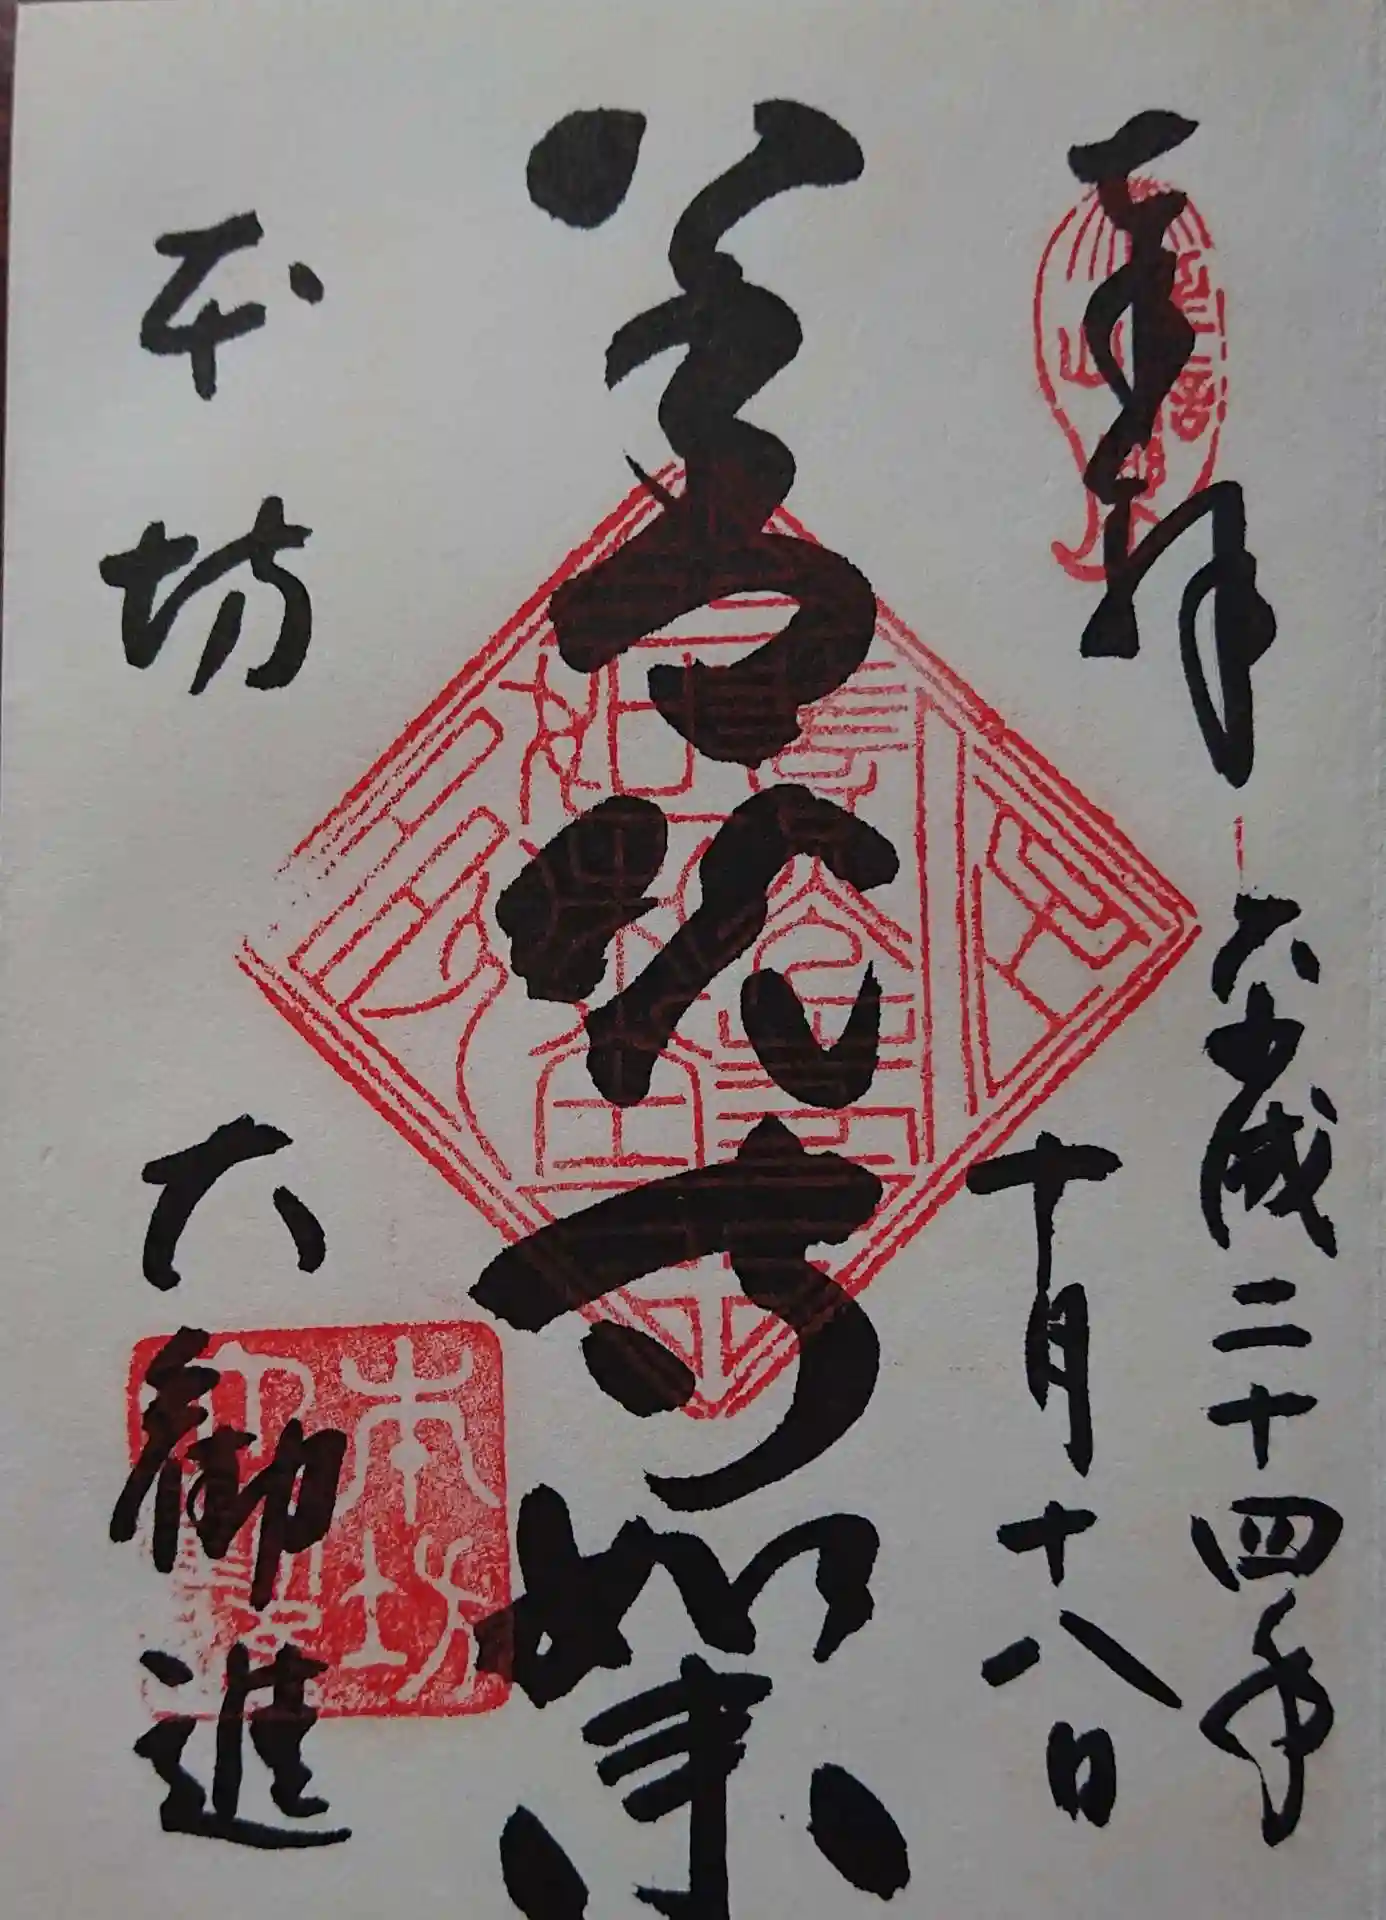 奉拝
平成二十四年
十月十八日
善光寺如来
本坊
大勧進
本坊